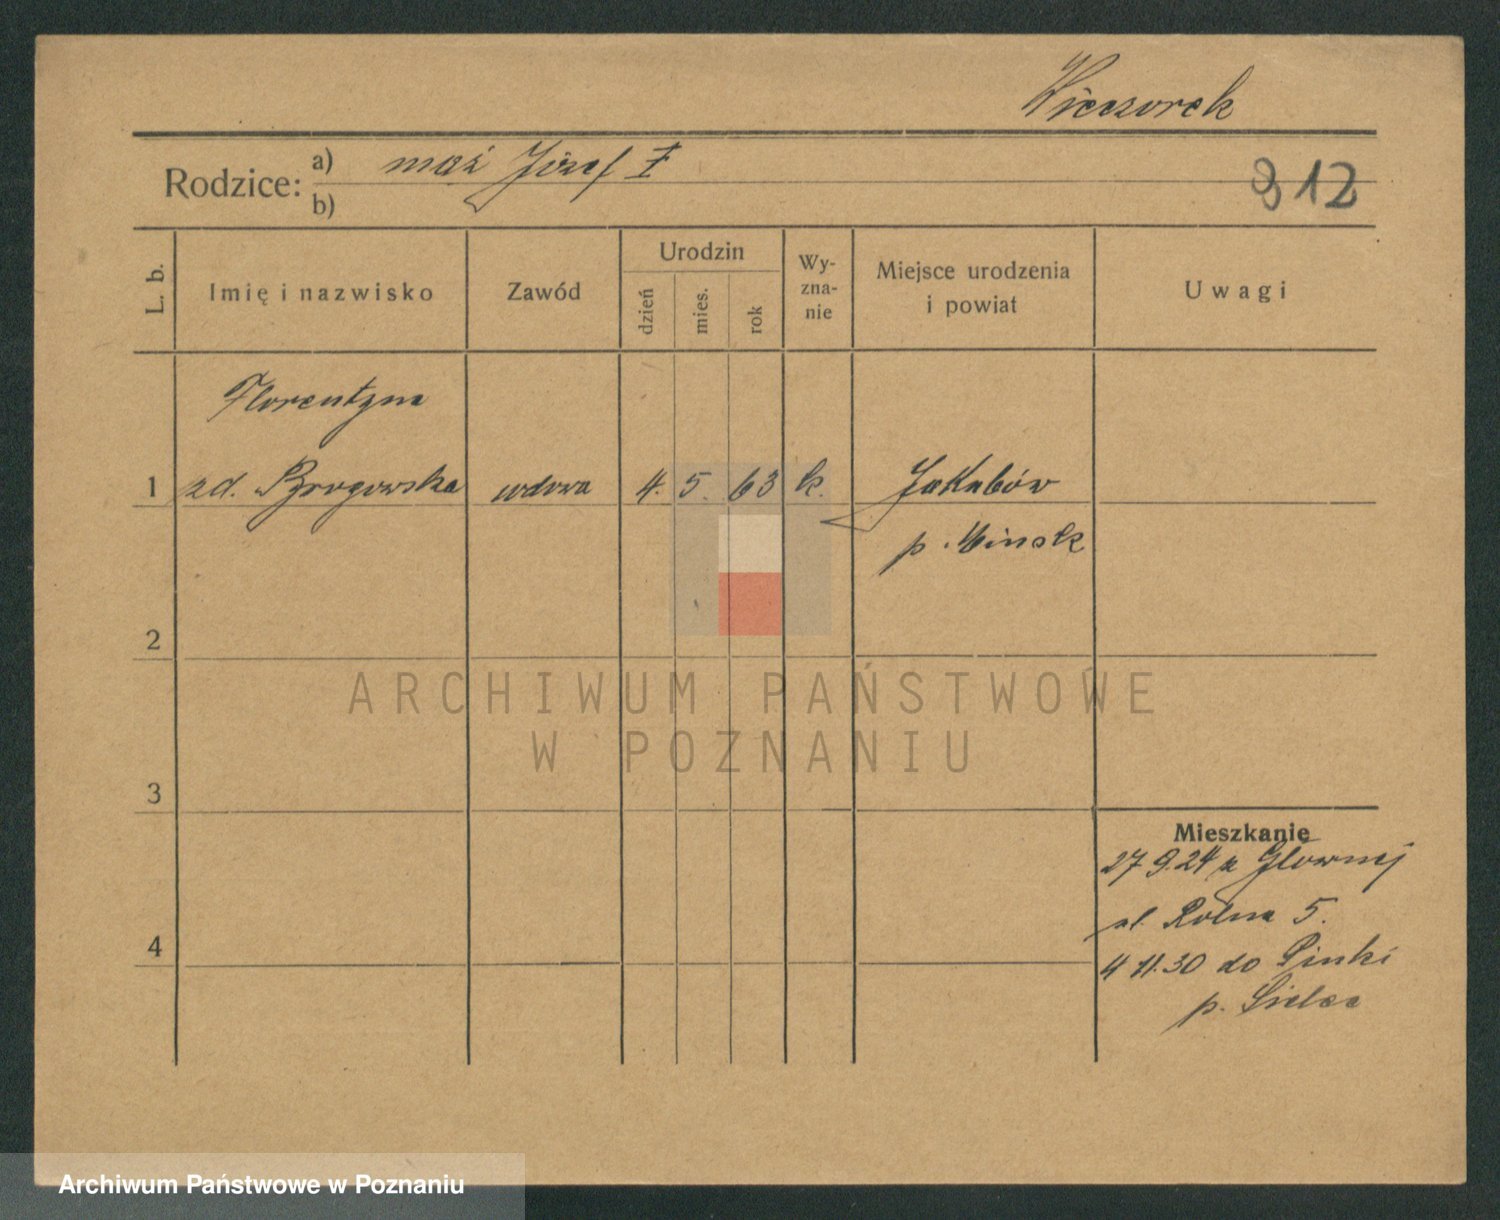 Wieczorek
Rodzice: a) mąż Józef ‡
b)
312
L. b.
Imię i nazwisko
Zawód
Urodzin
dzień
mies.
rok
Wy-
zna-
nie
Miejsce urodzenia
i powiat
Uwagi
Florentyna
1 zd. Brogowska wdowa 4. 5. 63 k. Jakubów
p. Minsk
2
3
4
ARCHIWUM PAŃSTWOWE
W POZNANIU
Mieszkanie
27 9.24 z Głownej
ul. Rolna 5.
4 11.30 do Pinki
p. Sielce
Archiwum Państwowe w Poznaniu